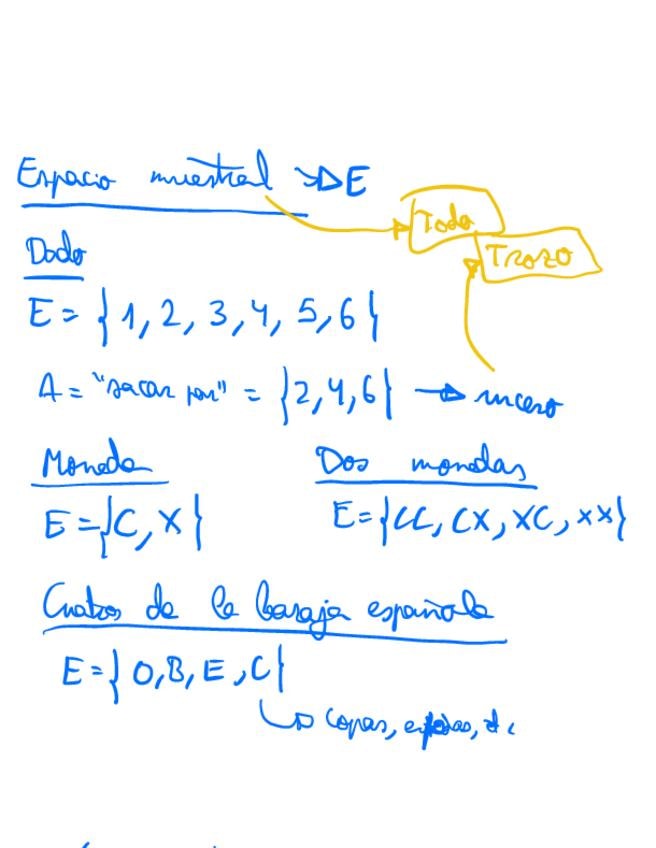 Espacio muestral → E
Todo
Trozo
Dado
E = {1, 2, 3, 4, 5, 6}
A = "sacar par" = {2, 4, 6} → suceso
Moneda
E = {C, X}
Dos monedas
E = {CC, CX, XC, XX}
Cuatros de la baraja española
E = {O, B, E, C}
→ copas, espadas, etc